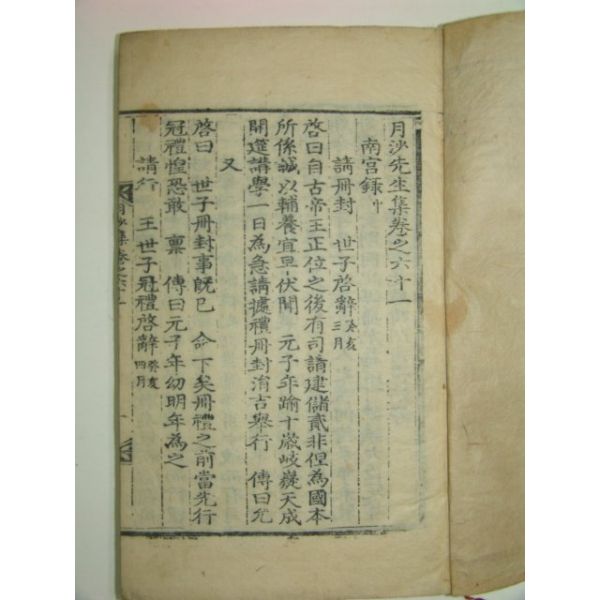 月沙先生集卷之六十一
南宮錄中
請冊封 世子啓辭癸亥三月
啓曰自古帝王正位之後有司請建儲貳非但為國本
所係誠以輔養宜早伏聞 元子年踰十歲岐嶷天成
開筵講學一日為急請據禮冊封消吉舉行 傳曰允
又
啓曰 世子冊封事旣已 命下矣冊禮之前當先行
冠禮惶恐敢 稟 傳曰元子年幼明年為之
請行 王世子冠禮啓辭癸亥四月
月沙集卷之六十一